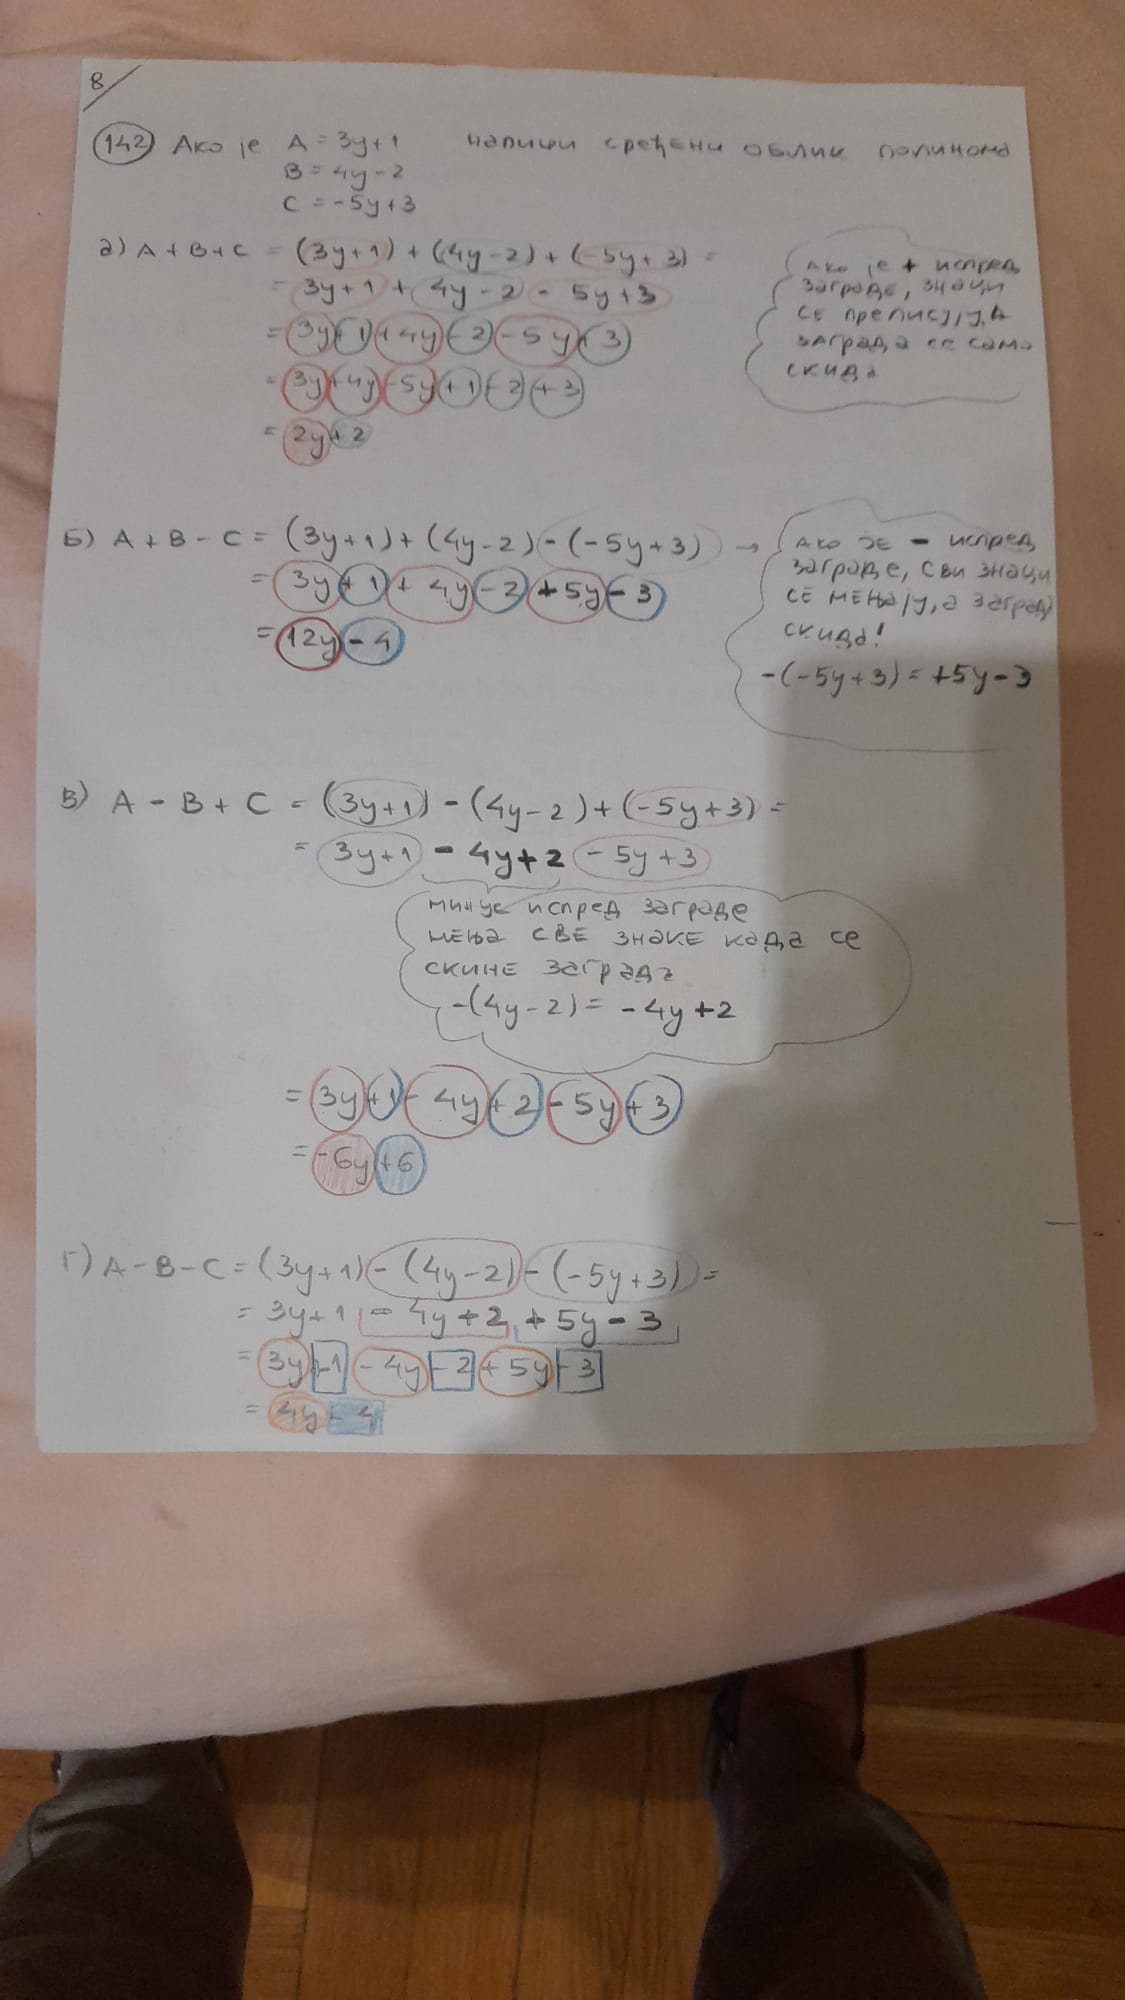 8/
142 Ако је A = 3y+1 напиши сређени облик полинома
B = 4y-2
C = -5y+3
а) A+B+C = (3y+1) + (4y-2) + (-5y+3) =
= 3y+1 + 4y-2 - 5y+3
= 3y+1+4y-2-5y+3
= 3y+4y-5y+1-2+3
= 2y+2
Ако је + испред
заграде, знаци
се преписују, а
заграда се само
скида
Б) A+B-C = (3y+1)+(4y-2)-(-5y+3) →
= 3y+1+4y-2+5y-3
= 12y-4
Ако је - испред
заграде, сви знаци
се мењају, а заграда
скида!
-(-5y+3) = +5y-3
В) A-B+C = (3y+1)-(4y-2)+(-5y+3) =
= 3y+1 - 4y+2 - 5y+3
минус испред заграде
мења све знаке када се
скине заграда
-(4y-2) = -4y+2
= 3y+1-4y+2-5y+3
= -6y+6
Г) A-B-C = (3y+1)-(4y-2)-(-5y+3) =
= 3y+1 - 4y+2 + 5y-3
= 3y+1-4y-2+5y-3
= 4y-4